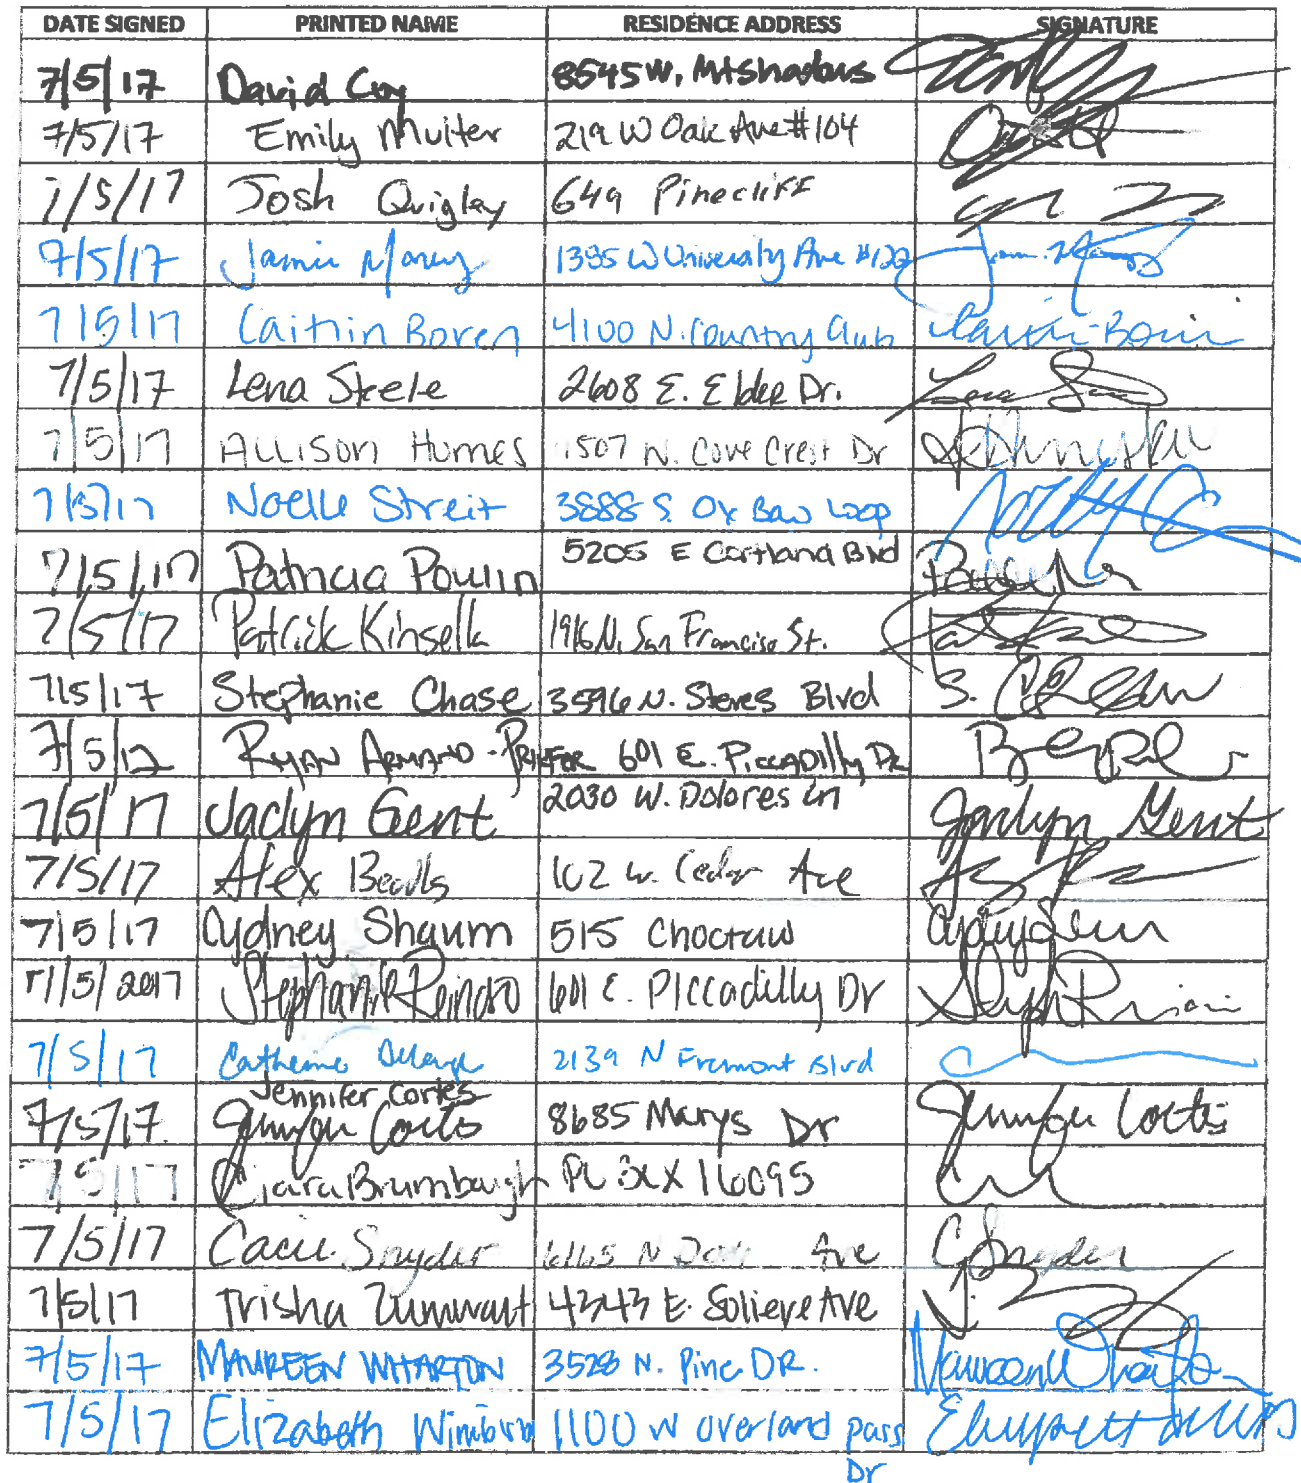 DATE SIGNED PRINTED NAME RESIDENCE ADDRESS SIGNATURE
7/5/17 David Coy 8545 W. Mtshadows
7/5/17 Emily Multer 219 W Oak Ave #104
7/5/17 Josh Quigley 649 Pinecliff
7/5/17 Jamie 1385 W University Ave #122
7/5/17 Caitlin Boren 4100 N. Country Club
7/5/17 Lena Steele 2608 E. Elder Dr. Lena
7/5/17 ALLISON Humes 1507 N. Cove Crest Dr
7/5/17 Noelle Streit 3888 S. Ox Bow Loop
7/5/17 Patricia Poulin 5205 E Cortland Blvd
7/5/17 Patrick Kinsella 1916 N. San Francisco St.
7/5/17 Stephanie Chase 3596 N. Steves Blvd S.
7/5/17 RYAN ARMAND-PRIEFER 601 E. PiccADilly DR
7/5/17 Jaclyn Gent 2030 W. Dolores Ln Jaclyn Gent
7/5/17 Alex Bealls 102 W. Cedar Ave
7/5/17 Cydney Shaum 515 Choctaw
7/5/2017 Stephanie Reinoso 601 E. Piccadilly Dr
7/5/17 Catherine 2139 N Fremont Blvd
Jennifer Cortes
7/5/17 Jennifer Cortes 8685 Marys Dr Jennifer Cortes
7/5/17 Ciara Brumbaugh PO BOX 16095
7/5/17 Cacie Snyder 6165 N Ave C Snyder
7/5/17 Trisha Zumwalt 4343 E. Soliere Ave
7/5/17 MAUREEN WHARTON 3528 N. Pine DR. Maureen Wharton
7/5/17 Elizabeth 1100 W overland pass
Dr